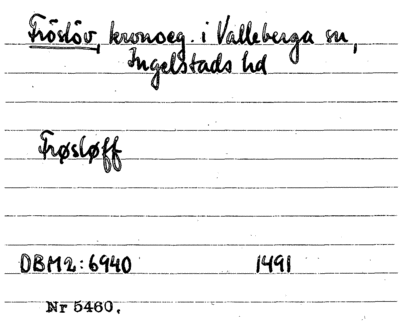 Fröslöv kronoeg. i Valleberga sn,
Ingelstads hd
Frøsløff
DBM2:6940 1491
Nr 5460.